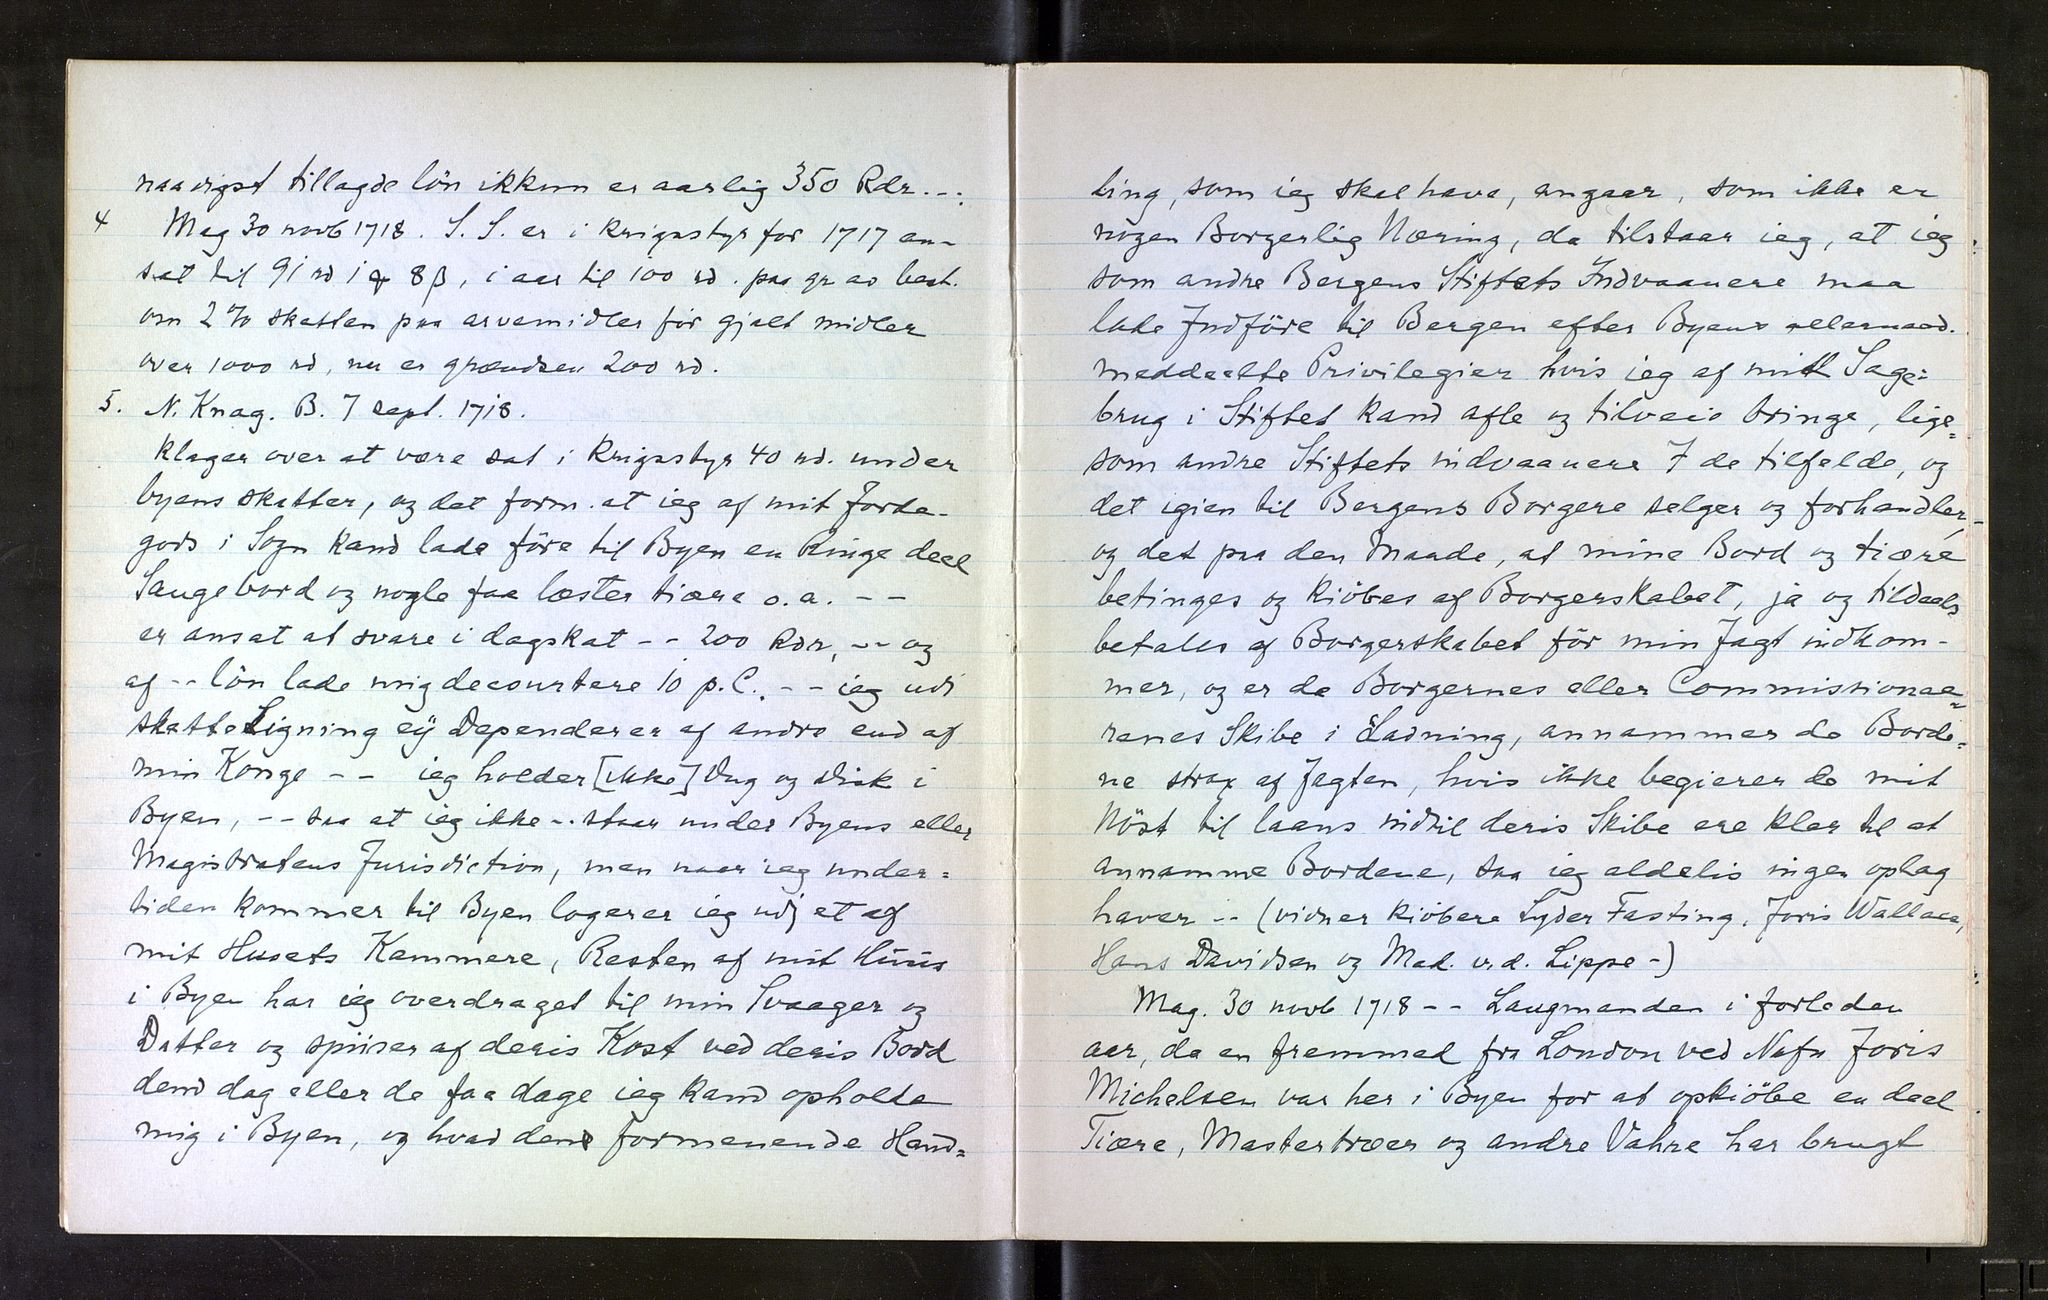 naadigst tillagde lön ikkun er aarlig 350 Rdr. - .
4 Mag 30 novb 1718. S. S. er i Krigsstyr for 1717 an-
sat til 91 rd 1 ꝣ 8 β, i aar til 100 rd. paa gr av best.
om 2 % skatten paa arvemidler för gjalt midler
over 1000 rd, nu er grændsen 200 rd.
5. N. Knag. B. 7 sept. 1718.
Klager over at være sat i Krigsstyr 40 rd. under
byens skatter, og det form. at ieg af mit Jorde-
gods i Sogn kand lade före til Byen en Ringe deel
Saugebord og nogle faa læster tiære o.a. - -
er ansat at svare i dagskat - - 200 Rdr, - - og
af - - lön lade mig decourtere 10 p.C. - - ieg udi
skatteLigning eÿ Dependerer af andre end af
min Konge - - ieg holder [ikke] Dug og Disk i
Byen, - - saa at ieg ikke - . staar under Byens eller
Magistratens Jurisdiction, men naar ieg under=
tiden kommer til Byen logerer ieg udj et af
mit Husets Kammere, Resten af mit Huus
i Byen har ieg overdraget til min Svaager og
Datter og spiiser af deris Kost ved deris Bord
dend dag eller de faa dage ieg kand opholde
mig i Byen, og hvad den formenende Hand=
ling, som ieg skal have, angaar, som ikke er
nogen Borgerlig Næring, da tilstaar ieg, at ieg
som andre Bergens Stiftets Indvaanere maa
lade Indföre til Bergen efter Byens allernaad.
meddeelte Privilegier hvis ieg af mit Sage=
brug i Stiftet kand afle og tilveie bringe, lige=
som andre Stiftets indvaanere I de tilfelde, og
det igien til Bergens Borgere selger og forhandler,
og det paa den Maade, at mine Bord og tiære
betinges og kiöbes af Borgerskabet, ja og tildeels
betales af Borgerskabet för min Jagt indkom-
mer, og er da Borgernes eller Commissionae=
renes Skibe i Ladning, annammer de Borde=
ne strax af Jagten, hvis ikke begierer de mit
Nöst til laans indtil deris Skibe ere klar til at
annamme Bordene, saa ieg aldelis ingen oplag
haver - - (vidner kiöbere Lyder Fasting, Joris Wallace,
Hans Davidsen og Mad. v.d. Lippe -)
Mag. 30 novb 1718 - - Laugmanden i forleden
aar, da en fremmed fra London ved Nafn Joris
Michelsen var her i Byen for at opkiöbe en deel
Tiære, Mastertræer og andre Vahre har brugt